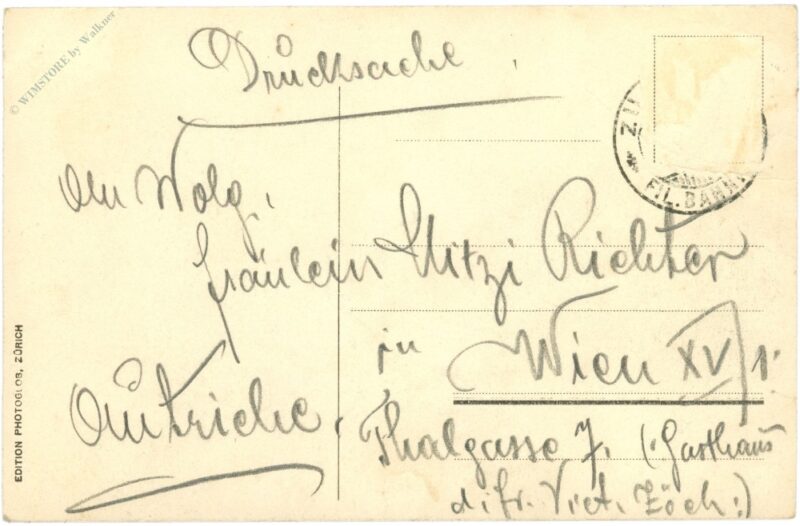 © WIMSTORE by Walkner
Drucksache.
An Wolg.
Fräulein Mitzi Richter
in
Wien XV/1.
Autriche.
Thalgasse 7. (:Gasthaus
d. fr. Vict. Zöch:)
ZÜ
FIL. BAHNH
EDITION PHOTOGLOB, ZÜRICH